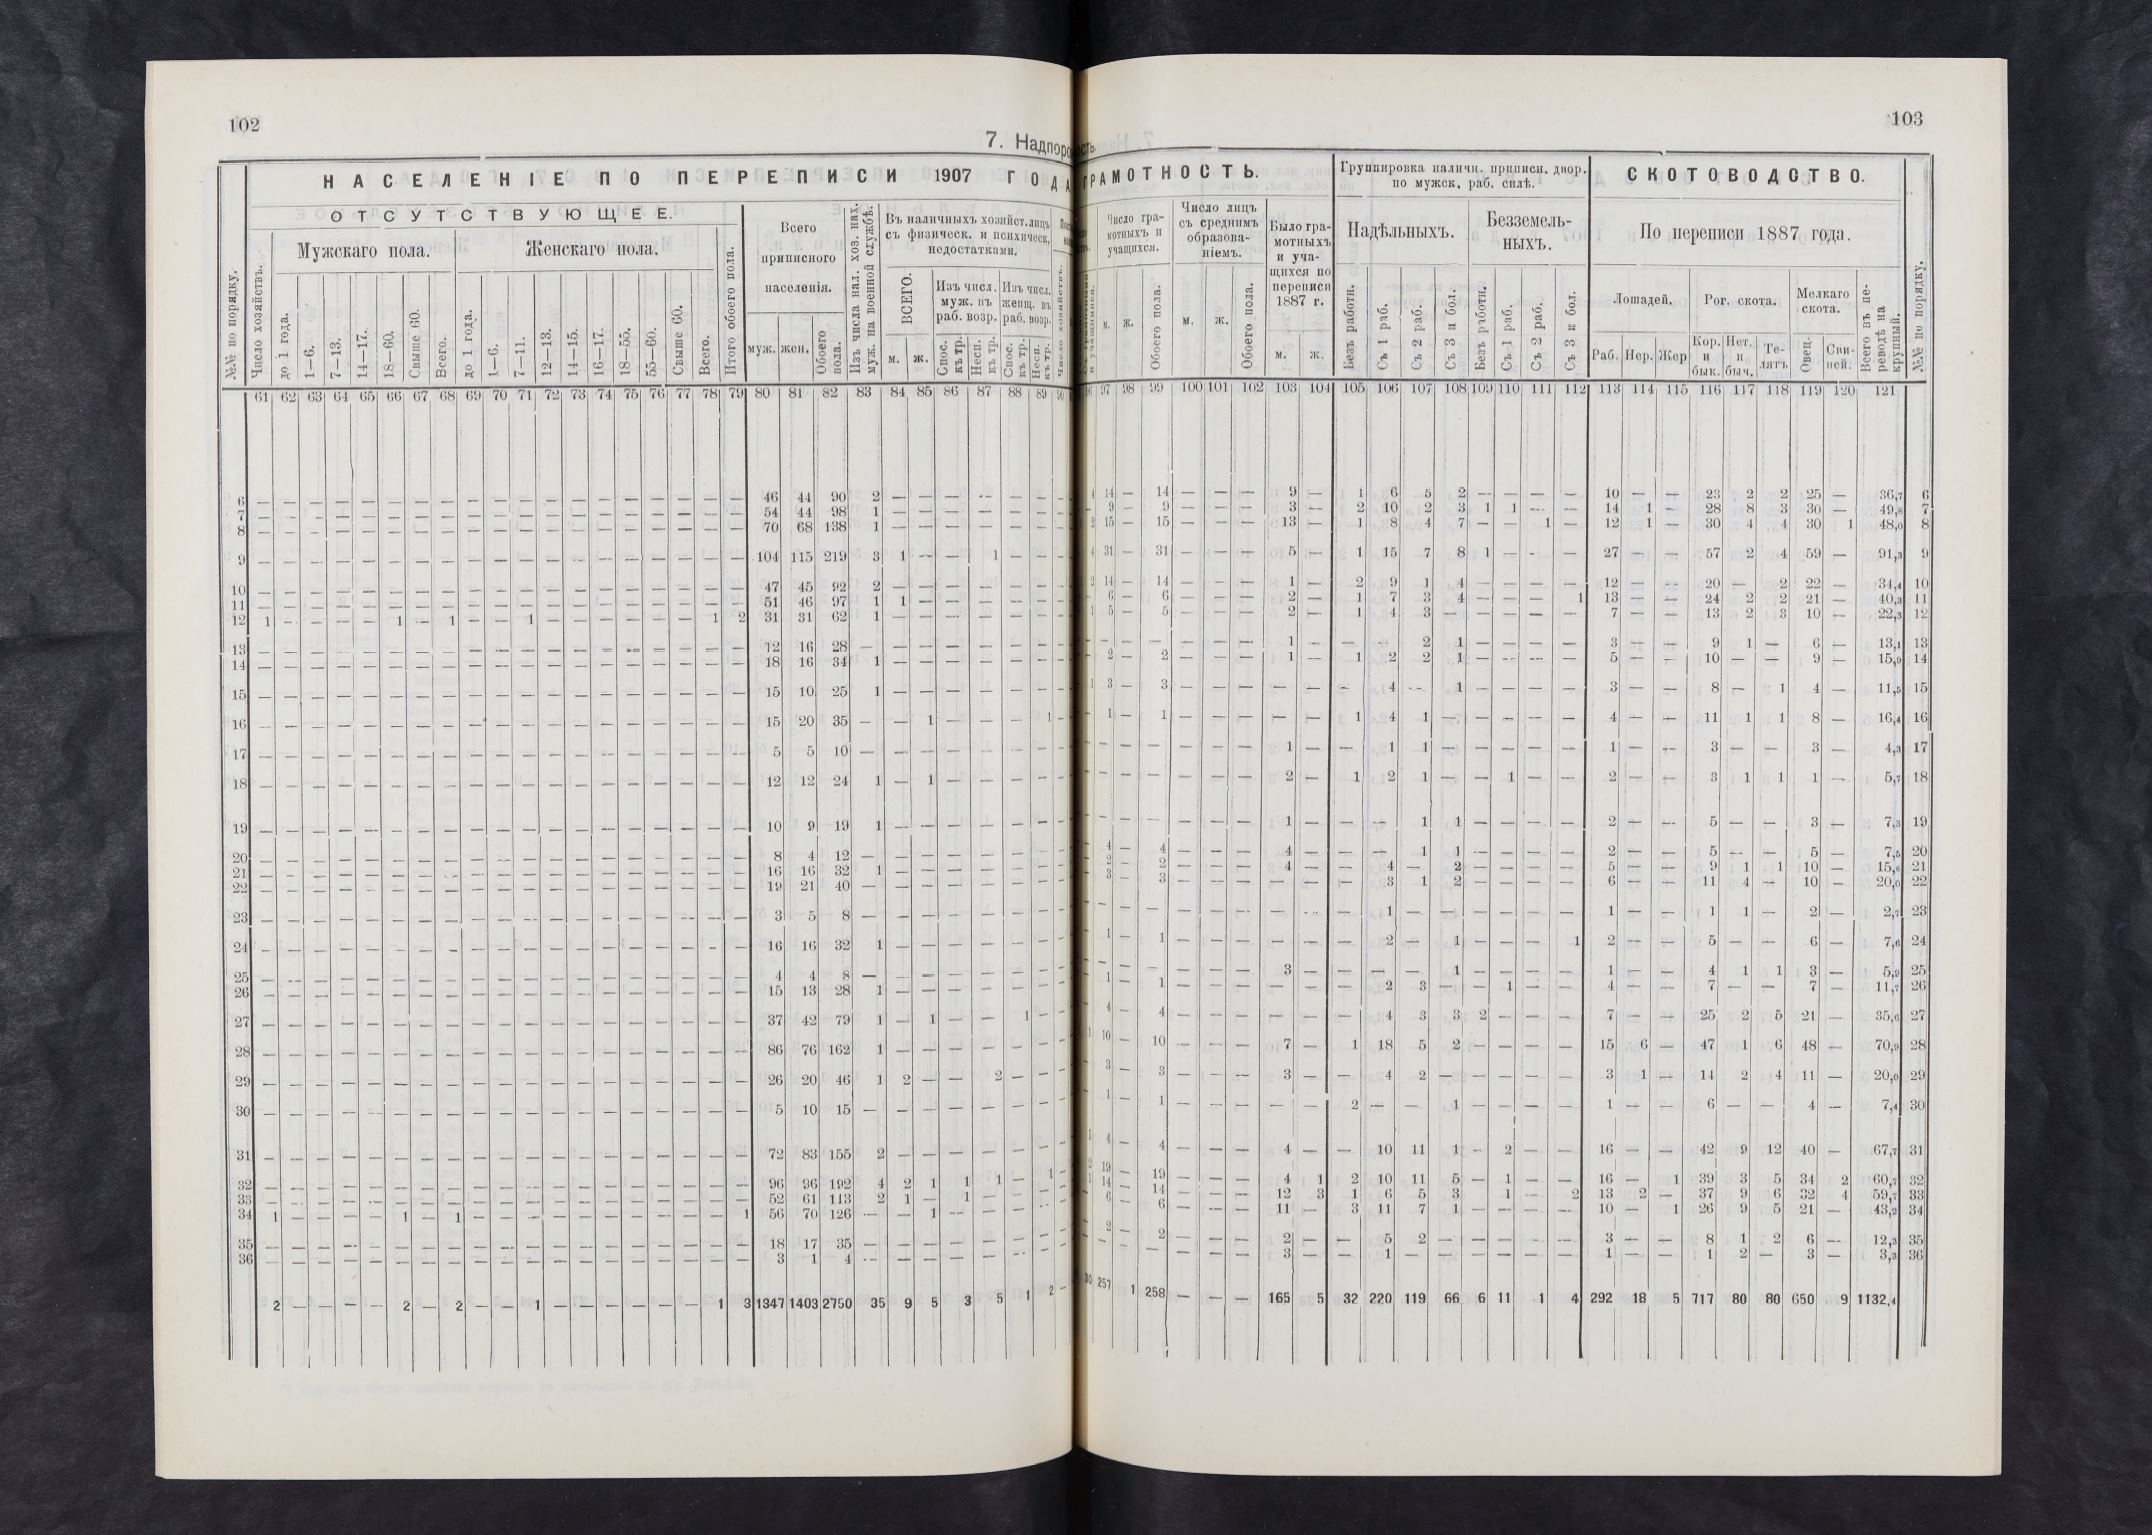 102
7. Надпорожс
НАСЕЛЕНІЕ ПО ПЕРЕПИСИ 1907 ГОДА
ОТСУТСТВУЮЩЕЕ.
Мужскаго пола. Женскаго пола.
Всего приписного населенія.
Въ наличныхъ хозяйст. лицъ съ физическ. и психическ. недостатками.
ВСЕГО. Изъ числ. муж. въ раб. возр. Изъ числ. женщ. въ раб. возр.
№№ по порядку. Число хозяйствъ. до 1 года. 1—6. 7—13. 14—17. 18—60. Свыше 60. Всего. до 1 года. 1—6. 7—11. 12—13. 14—15. 16—17. 18—55. 55—60. Свыше 60. Всего. Итого обоего пола. муж. жен. Обоего пола. Изъ числа нал. хоз. нах. муж. на военной службѣ. м. ж. Спос. къ тр. Несп. къ тр. Спос. къ тр. Несп. къ тр. Число хозяйствъ.
61 62 63 64 65 66 67 68 69 70 71 72 73 74 75 76 77 78 79 80 81 82 83 84 85 86 87 88 89 90
6 — — — — — — — — — — — — — — — — — — — 46 44 90 2 — — — — — — —
7 — — — — — — — — — — — — — — — — — — — 54 44 98 1 — — — — — — —
8 — — — — — — — — — — — — — — — — — — — 70 68 138 1 — — — — — — —
9 — — — — — — — — — — — — — — — — — — — 104 115 219 3 1 — — 1 — — —
10 — — — — — — — — — — — — — — — — — — — 47 45 92 2 — — — — — — —
11 — — — — — — — — — — — — — — — — — — — 51 46 97 1 1 — — — — — —
12 1 — — — — 1 — 1 — — 1 — — — — — — 1 2 31 31 62 1 — — — — — — —
13 — — — — — — — — — — — — — — — — — — — 12 16 28 — — — — — — — —
14 — — — — — — — — — — — — — — — — — — — 18 16 34 1 — — — — — — —
15 — — — — — — — — — — — — — — — — — — — 15 10 25 1 — — — — — — —
16 — — — — — — — — — — — — — — — — — — — 15 20 35 — — 1 — — — 1 —
17 — — — — — — — — — — — — — — — — — — — 5 5 10 — — — — — — — —
18 — — — — — — — — — — — — — — — — — — — 12 12 24 1 — 1 — — — — —
19 — — — — — — — — — — — — — — — — — — — 10 9 19 1 — — — — — — —
20 — — — — — — — — — — — — — — — — — — — 8 4 12 — — — — — — — —
21 — — — — — — — — — — — — — — — — — — — 16 16 32 1 — — — — — — —
22 — — — — — — — — — — — — — — — — — — — 19 21 40 — — — — — — — —
23 — — — — — — — — — — — — — — — — — — — 3 5 8 — — — — — — — —
24 — — — — — — — — — — — — — — — — — — — 16 16 32 1 — — — — — — —
25 — — — — — — — — — — — — — — — — — — — 4 4 8 — — — — — — — —
26 — — — — — — — — — — — — — — — — — — — 15 13 28 1 — — — — — — —
27 — — — — — — — — — — — — — — — — — — — 37 42 79 1 — 1 — — 1 — —
28 — — — — — — — — — — — — — — — — — — — 86 76 162 1 — — — — — — —
29 — — — — — — — — — — — — — — — — — — — 26 20 46 1 2 — — 2 — — —
30 — — — — — — — — — — — — — — — — — — — 5 10 15 — — — — — — — —
31 — — — — — — — — — — — — — — — — — — — 72 83 155 2 — — — — — — —
32 — — — — — — — — — — — — — — — — — — — 96 96 192 4 2 1 1 1 — 1 —
33 — — — — — — — — — — — — — — — — — — — 52 61 113 2 1 — 1 — — — —
34 1 — — — — 1 — 1 — — — — — — — — — — 1 56 70 126 — — 1 — — — — —
35 — — — — — — — — — — — — — — — — — — — 18 17 35 — — — — — — — —
36 — — — — — — — — — — — — — — — — — — — 3 1 4 — — — — — — — —
2 — — — — 2 — 2 — — 1 — — — — — — 1 3 1347 1403 2750 35 9 5 3 5 1 2 —
103
сть.
ГРАМОТНОСТЬ. Группировка наличн. приписн. двор. по мужск. раб. силѣ. СКОТОВОДСТВО.
Число грамотныхъ и учащихся. Число лицъ съ среднимъ образованіемъ. Было грамотныхъ и учащихся по переписи 1887 г. Надѣльныхъ. Безземельныхъ. По переписи 1887 года.
Лошадей. Рог. скота. Мелкаго скота.
м. ж. Обоего пола. м. ж. Обоего пола. м. ж. Безъ работн. Съ 1 раб. Съ 2 раб. Съ 3 и бол. Безъ работн. Съ 1 раб. Съ 2 раб. Съ 3 и бол. Раб. Нер. Жер Кор. и бык. Нет. и быч. Телятъ Овец. Свиней. Всего въ переводѣ на крупный. №№ по порядку.
97 98 99 100 101 102 103 104 105 106 107 108 109 110 111 112 113 114 115 116 117 118 119 120 121
4 14 — 14 — — — 9 — 1 6 5 2 — — — — 10 — — 23 2 2 25 — 36,7 6
— 9 — 9 — — — 3 — 2 10 2 3 1 1 — — 14 1 — 28 8 3 30 — 49,8 7
2 15 — 15 — — — 13 — 1 8 4 7 — — 1 — 12 1 — 30 4 4 30 1 48,0 8
4 31 — 31 — — — 5 — 1 15 7 8 1 — — — 27 — — 57 2 4 59 — 91,3 9
2 14 — 14 — — — 1 — 2 9 1 4 — — — — 12 — — 20 — 2 22 — 34,4 10
— 6 — 6 — — — 2 — 1 7 3 4 — — — 1 13 — — 24 2 2 21 — 40,3 11
1 5 — 5 — — — 2 — 1 4 3 — — — — — 7 — — 13 2 3 10 — 22,3 12
— — — — — — — 1 — — — 2 1 — — — — 3 — — 9 1 — 6 — 13,1 13
— 2 — 2 — — — 1 — 1 2 2 1 — — — — 5 — — 10 — — 9 — 15,9 14
1 3 — 3 — — — — — — 4 — 1 — — — — 3 — — 8 — 1 4 — 11,5 15
— 1 — 1 — — — — — 1 4 1 — — — — — 4 — — 11 1 1 8 — 16,4 16
— — — — — — — 1 — — 1 1 — — — — — 1 — — 3 — — 3 — 4,3 17
— — — — — — — 2 — 1 2 1 — — 1 — — 2 — — 3 1 1 1 — 5,7 18
— — — — — — — 1 — — — 1 1 — — — — 2 — — 5 — — 3 — 7,3 19
4 — 4 — — — 4 — — — 1 1 — — — — 2 — — 5 — — 5 — 7,5 20
2 — 2 — — — 4 — — 4 — 2 — — — — 5 — — 9 1 1 10 — 15,6 21
3 — 3 — — — — — — 3 1 2 — — — — 6 — — 11 4 — 10 — 20,0 22
— — — — — — — — — 1 — — — — — — 1 — — 1 1 — 2 — 2,7 23
1 — 1 — — — — — — 2 — 1 — — — 1 2 — — 5 — — 6 — 7,6 24
— — — — — — 3 — — — — 1 — — — — 1 — — 4 1 1 3 — 5,9 25
1 — 1 — — — — — — 2 3 — — 1 — — 4 — — 7 — — 7 — 11,7 26
4 — 4 — — — — — — 4 3 3 2 — — — 7 — — 25 2 5 21 — 35,6 27
1 10 — 10 — — — 7 — 1 18 5 2 — — — — 15 6 — 47 1 6 48 — 70,9 28
3 — 3 — — — 3 — — 4 2 — — — — — 3 1 — 14 2 4 11 — 20,0 29
1 — 1 — — — — — 2 — — 1 — — — — 1 — — 6 — — 4 — 7,4 30
1 4 — 4 — — — 4 — — 10 11 1 — 2 — — 16 — — 42 9 12 40 — 67,7 31
2 19 — 19 — — — 4 1 2 10 11 5 — 1 — — 16 — 1 39 3 5 34 2 60,7 32
1 14 — 14 — — — 12 3 1 6 5 3 — 1 — 2 13 2 — 37 9 6 32 4 59,7 33
6 — 6 — — — 11 — 3 11 7 1 — — — — 10 — 1 26 9 5 21 — 43,2 34
2 — 2 — — — 2 — — 5 2 — — — — — 3 — — 8 1 2 6 — 12,3 35
— — — — — — 3 — — 1 — — — — — — 1 — — 1 2 — 3 — 3,3 36
30 257 1 258 — — — 165 5 32 220 119 66 6 11 1 4 292 18 5 717 80 80 650 9 1132,4